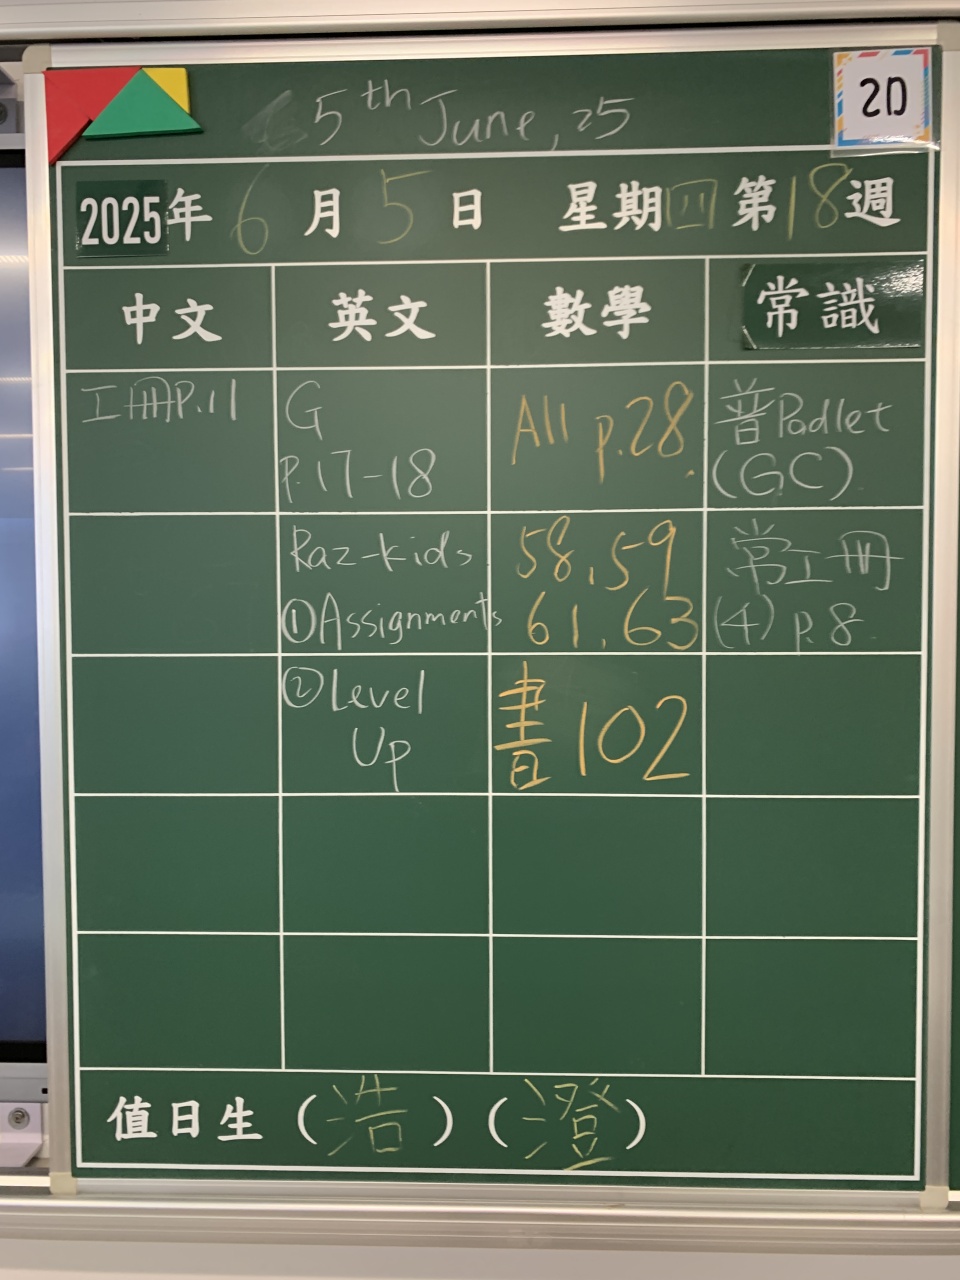 5th June, 25
2D
2025年 6 月 5 日 星期四 第18週
中文 英文 數學 常識
工冊P.11
G
P.17-18
All p.28
普Padlet
(GC)
Raz-kids
①Assignments
58, 59
61, 63
常工冊
(4) p.8
②Level
Up
書 102
值日生 (浩) (澄)